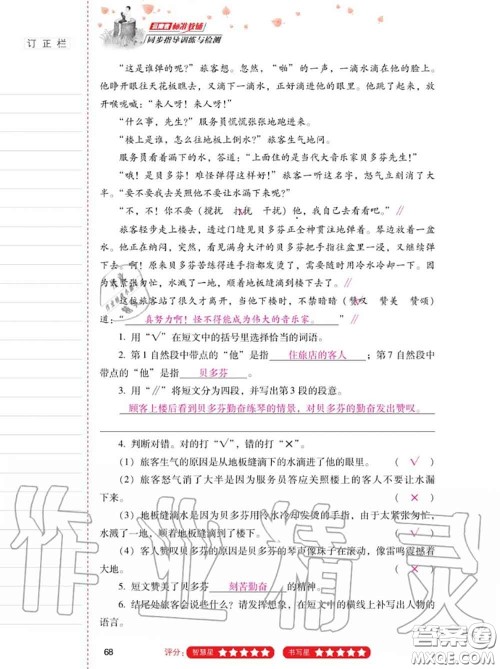 订正栏
标准教辅
同步指导训练与检测
“这是谁弹的呢？”旅客想。忽然，“啪”的一声，一滴水滴在他的脸上。
他睁开眼往天花板瞧去，又滴下一滴水，正好滴进他的眼里。他跳了起来，放
开喉咙喊：“来人呀！来人呀！”
“什么事，先生？”服务员慌慌张张地跑进来。
“楼上是谁，怎么往地板上倒水？”旅客生气地问。
服务员看着漏下的水，答道：“上面住的是当代大音乐家贝多芬先生！”
“噢！是贝多芬！难怪弹得这样好！”旅客一听这名字，怒气立刻消了大
半。“要不要我去关照他不要让水漏下来呢？”
“不，不！你不要（搅扰 打扰 干扰）他，我当我去看看吧。”∥
旅客轻步走上楼去，透过门缝见贝多芬正全神贯注地弹着。琴边放着一盆
水。他正在纳闷，突然，看见满身大汗的贝多芬把手指往盆里一浸，又继续弹
下去。啊！原来贝多芬苦练得连手指都发烫了，需要随时用冷水冷却一下。因
为太紧张匆忙，水溅了一地，顺着地板缝滴到了楼下。∥
这位旅客站了很久才离开，当他下楼时，不禁暗暗（赞叹 赞美 赞颂）
道：“真努力啊！怪不得能成为伟大的音乐家。”∥
1. 用“√”在短文中的括号里选择恰当的词语。
2. 第1自然段中带点的“他”是指 住旅店的客人 ；第7自然段中
带点的“他”是指 贝多芬 。
3. 用“∥”将短文分为四段，并写出第3段的段意。
顾客上楼后看到贝多芬勤奋练琴的情景，对贝多芬的勤奋发出赞叹。
4. 判断对错。对的打“√”，错的打“×”。
（1）旅客生气的原因是从地板缝滴下的水滴进了他的眼里。（√）
（2）旅客怒气消了大半是因为服务员答应关照楼上的客人不要让水漏
下来。（×）
（3）地板缝滴水是因为贝多芬用冷水冷却发烫的手指，由于太紧张匆忙，
水溅了一地，顺着地板缝滴到了楼下。（√）
（4）客人赞叹贝多芬的原因是贝多芬的琴声像珠子在滚动，像雷鸣震撼着
大地。（×）
5. 短文赞美了贝多芬 刻苦勤奋 的精神。
6. 结尾处旅客会说些什么？请发挥想象，在短文中的横线上补写出人物的
语言。
68
评分：智慧星 ★★★★★ 书写星 ★★★★★
作业精灵
答案圈
MXQE.COM